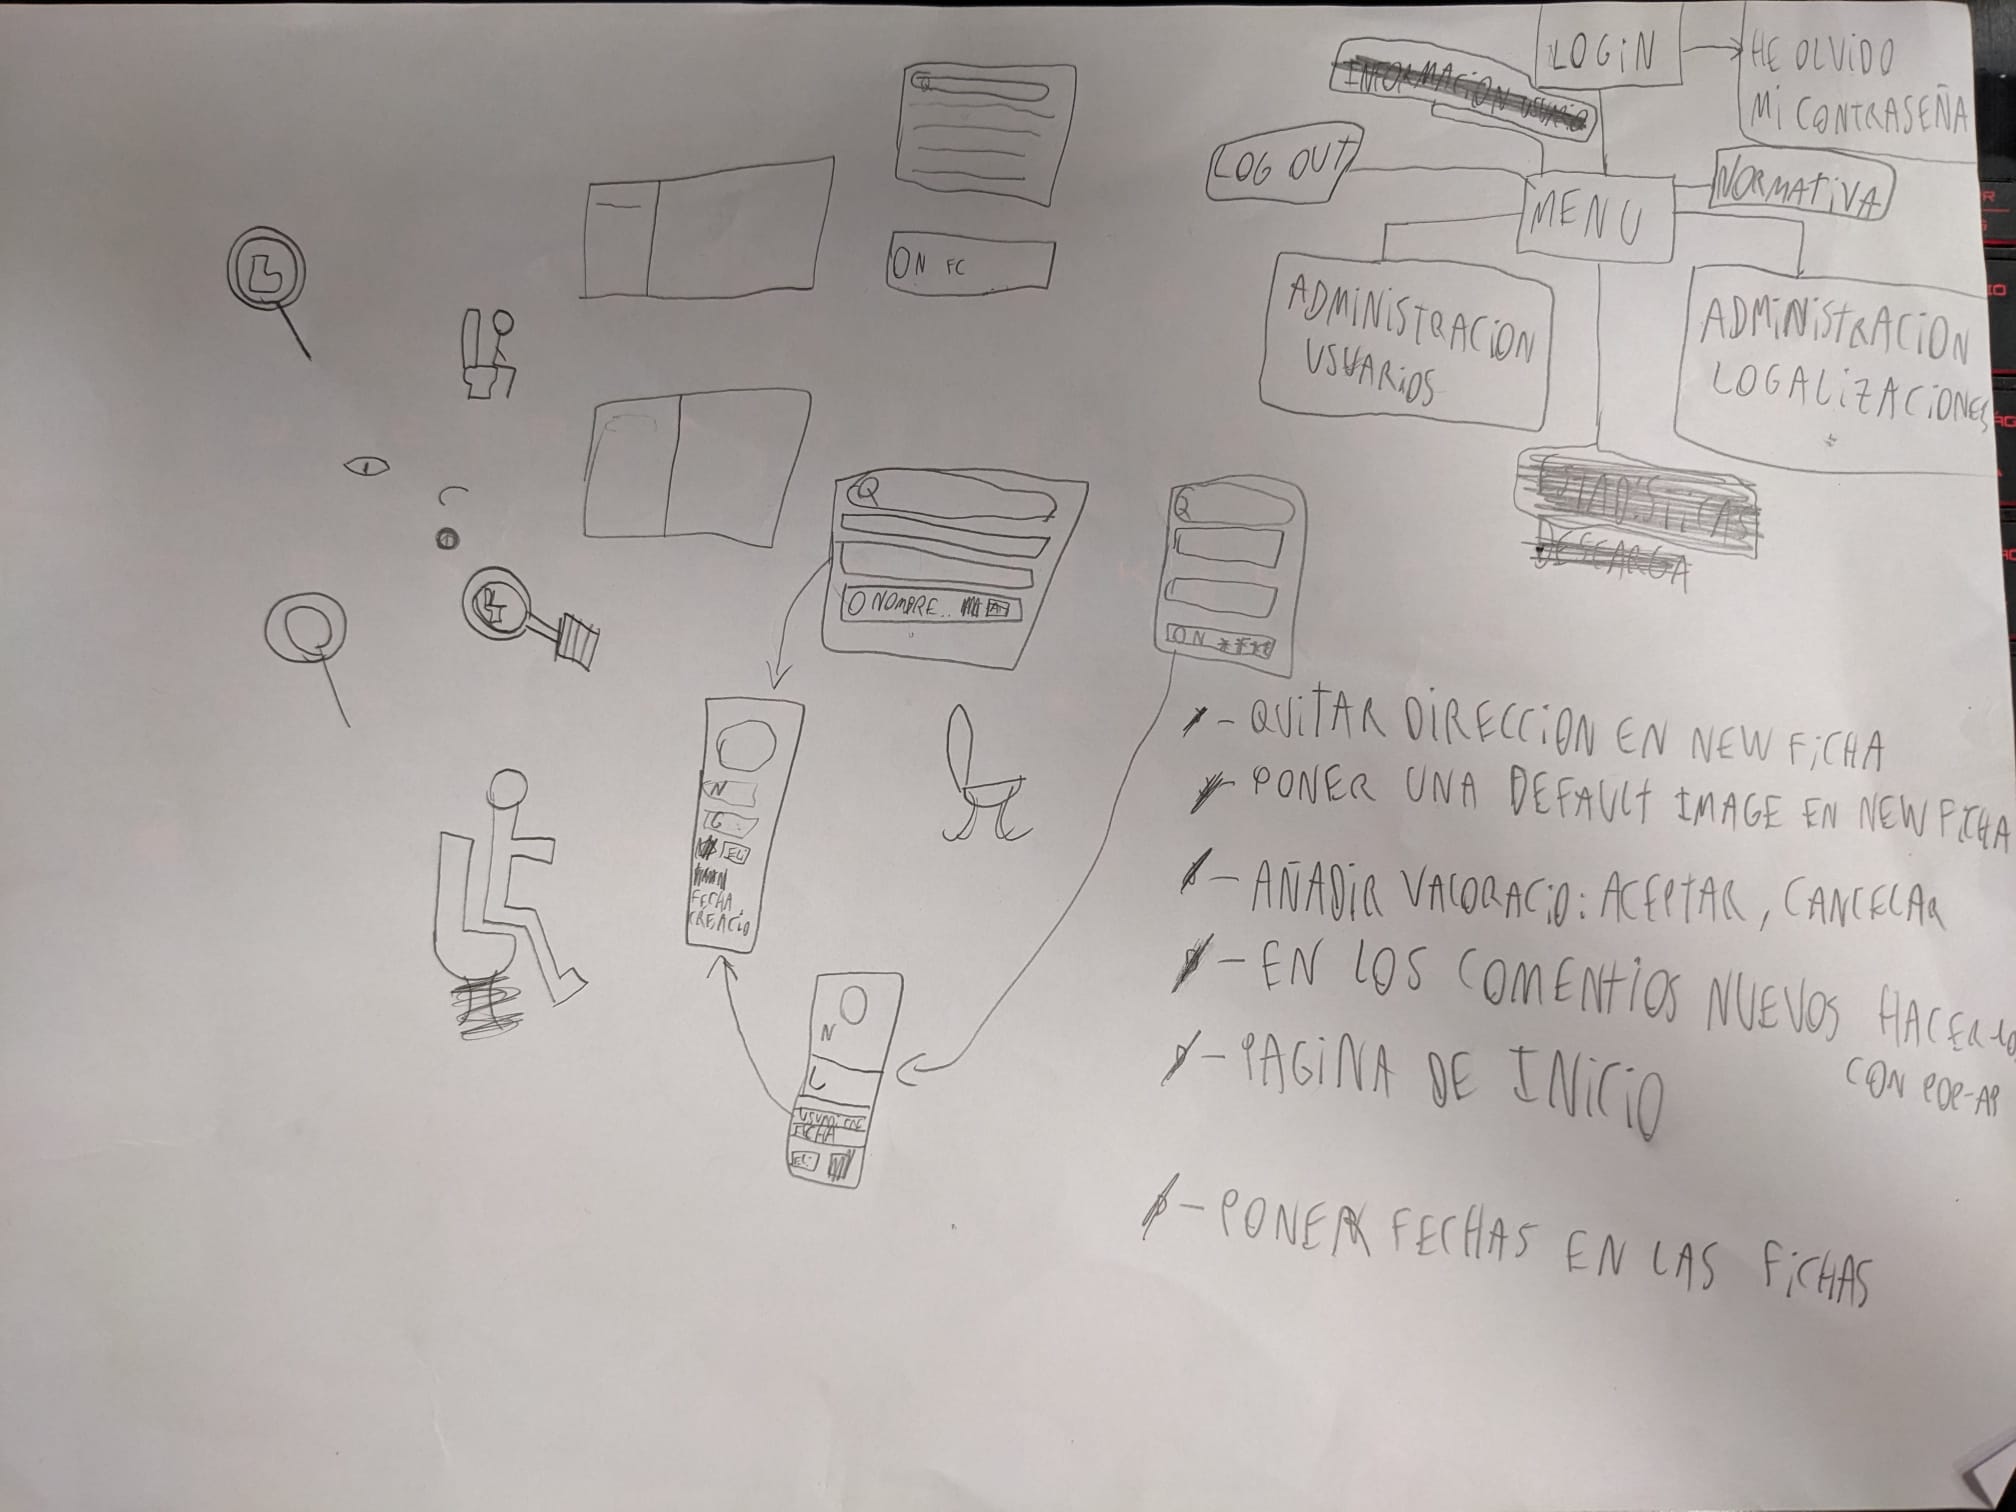 LOGIN
HE OLVIDO
MI CONTRASEÑA
INFORMACION USUARIO
LOG OUT
MENU
NORMATIVA
ADMINISTRACION
USUARIOS
ADMINISTRACION
LOGALIZACIONES
ESTADISTICAS
DESCARGA
Q
ON FC
Q
O NOMBRE..
Q
ON ****
N
C
EL
FECHA
CREACIO
N
L
FICHA
EL
- QUITAR DIRECCION EN NEW FICHA
- PONER UNA DEFAULT IMAGE EN NEW FICHA
- AÑADIR VALORACIO: ACEPTAR, CANCELAR
- EN LOS COMENTIOS NUEVOS HACERLO
CON POP-AP
- PAGINA DE INICIO
- PONER FECHAS EN LAS FICHAS